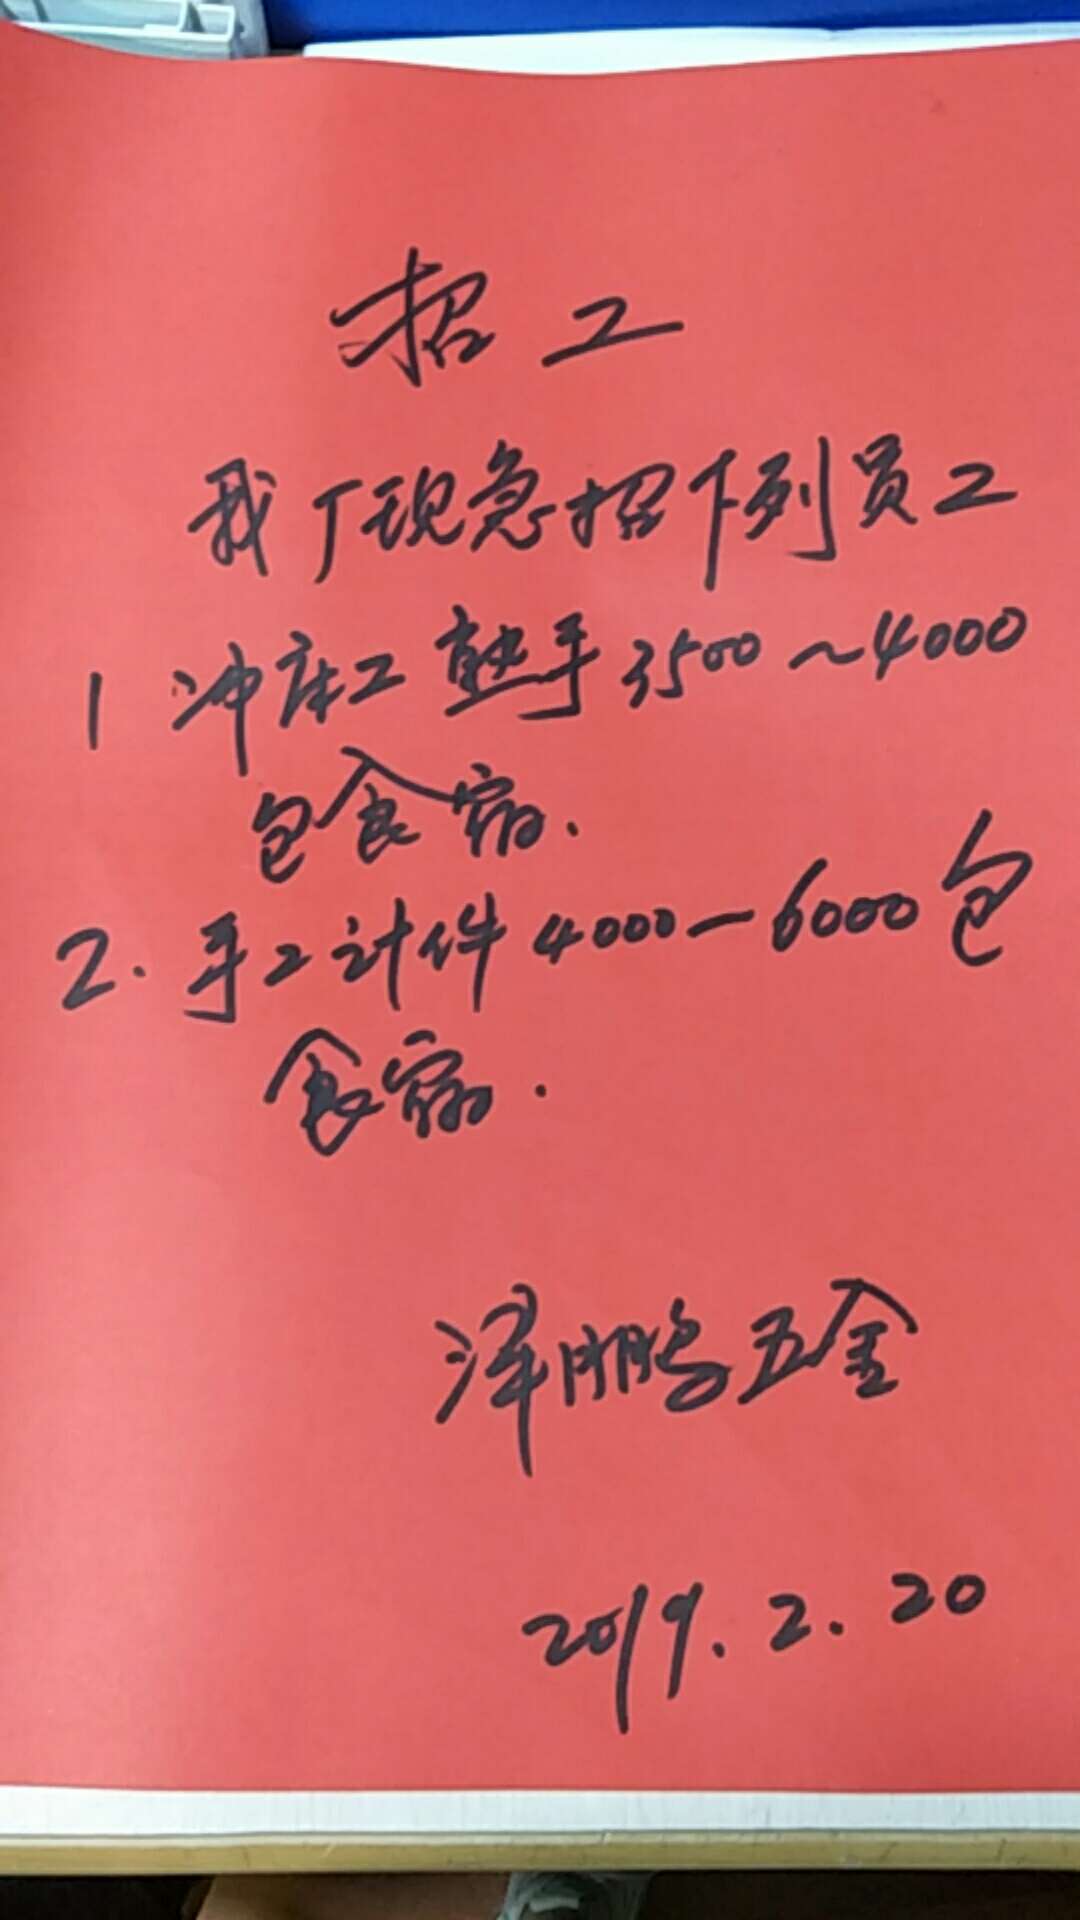 招工
我厂现急招下列员工
1 冲床工熟手3500~4000
包食宿.
2. 手工计件4000-6000包
食宿.
泽鹏五金
2019.2.20